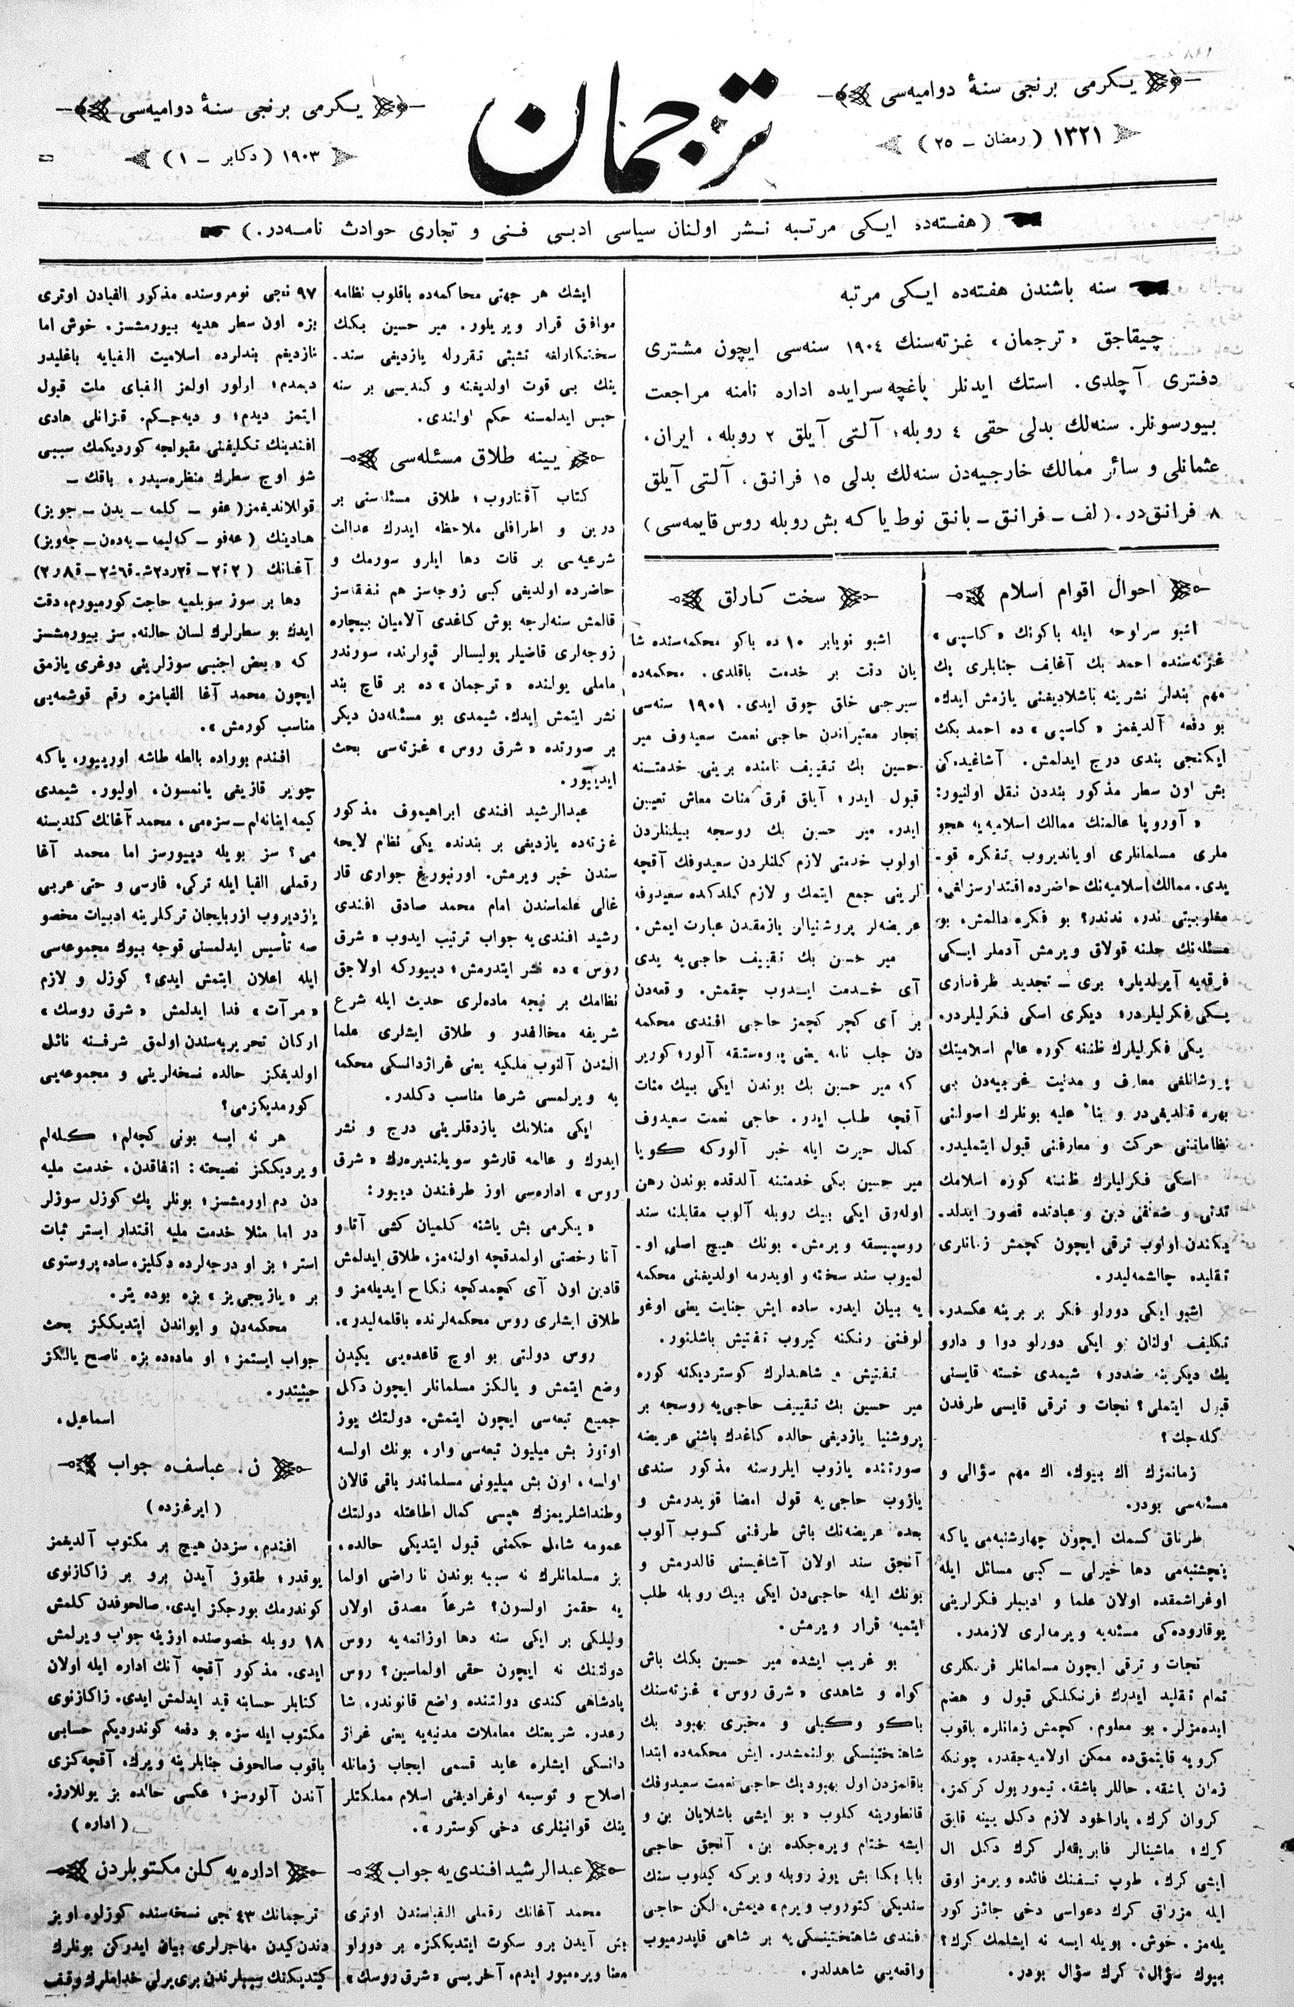 یکرمی برنجی سنهٔ دوامیه‌سی
۱۳۲۱ ( رمضان – ۲۵ )
ترجمان
یکرمی برنجی سنهٔ دوامیه‌سی
۱۹۰۳ ( دکابر – ۱ )
( هفته‌ده ایکی مرتبه نشر اولنان سیاسی ادبی فنی و تجاری حوادث نامه‌در. )
سنه باشندن هفته‌ده ایکی مرتبه
چیقاجق «ترجمان» غزته‌سنك ۱۹۰٤ سنه‌سی ایچون مشتری
دفتری آچلدی. استك ایدنلر باغچه‌سرایده اداره نامنه مراجعت
بیورسونلر. سنه‌لك بدلی حقی ٤ روبله؛ آلتی آیلق ۲ روبله، ایران،
عثمانلی و سائر ممالك خارجیه‌دن سنه‌لك بدلی ۱٥ فرانق، آلتی آیلق
۸ فرانق‌در. ( لف – فرانق – بانق نوط یاکه بش روبله روس قایمه‌سی )
احوال اقوام اسلام
اشبو سراوحه ایله باکونك «کاسپی»
غزته‌سنده احمد بك آغایف جنابلری پك
مهم بندلر نشرینه باشلادیغنی یازمش ایدك.
بو دفعه آلدیغمز «کاسپی» ده احمد بكك
ایکنجی بندی درج ایدلمش. آشاغیده‌کی
بش اون سطر مذکور بندن نقل اولنیور:
« آوروپا عالمنك ممالك اسلامیه‌یه هجو
ملری مسلمانلری اویاندیروب تفکره قو-
یدی. ممالك اسلامیه‌نك حاضرده اقتدارسزلغی،
مغلوبیتی ندر، ندندر؟ بو فکره دالمش، بو
مسئله‌نك حلنه قولاق ویرمش آدملر ایکی
فرقه‌یه آیرلدیلر؛ بری – تجدید طرفداری
یکی فکرلیلردر؛ دیکری اسکی فکرلیلردر.
یکی فکرلیلرك ظننه کوره عالم اسلامیتك
پریشانلغی معارف و مدنیت غربیه‌دن بی
بهره قالدیغی‌در و بناءً علیه بونلرك اصولنی
نظاماتنی حرکت و معارفنی قبول ایتملیدر.
اسکی فکرلیلرك ظننه کوره اسلامك
تدنی و ضعفی دین و عباداتده قصور ایدلد-
یکندن اولوب ترقی ایچون کچمش زمانلری
تقلیده چالشمه‌لیدر.
اشبو ایکی دورلو فکر بر برینه عکسدر.
تکلیف اولنان و ایکی دورلو دوا و دارو
یك دیکرینه ضددر؛ شیمدی خسته قایسنی
قبول ایتملی؟ نجات و ترقی قایسی طرفدن
کله‌جك؟
زمانمزك اك بیوك، اك مهم سؤالی و
مسئله‌سی بودر.
طرناق کسمك ایچون چهارشنبه‌می یاکه
پنجشنبه‌می دها خیرلی – کبی مسائل ایله
اوغراشمقده اولان علما و ادیبلر فکرلرینی
یوقاروده‌کی مسئله‌یه ویرمه‌لری لازمدر.
نجات و ترقی ایچون مسلمانلر فرنکلری
تمام تقلید ایدرك فرنکلکی قبول و هضم
ایده‌مزلر. بو معلوم. کچمش زمانلره باقوب
کرویه قایتمق‌ده ممکن اولامیه‌جقدر، چونکه
زمان باشقه. حاللر باشقه. تیمور یول کرکمز،
کروان کرك، یاراخود لازم دکل ینه قایق
کرك؛ ماشینالر فابریقه‌لر کرك دکل ال
ایشی کرك، طوپ تسفنك فائده ویرمز اوق
ایله مزراق کرك دعواسی دخی جائز کور
یله‌مز. خوش. بویله ایسه نه ایشلمك کرك؟
بیوك سؤال، کرك سؤال بودر.
سخت کارلق
اشبو نویابر ۱۰ ده باکو محکمه‌سنده شا
یان دقت بر خدمت باقلدی. محکمه‌ده
سیرجی خلق چوق ایدی. ۱۹۰۱ سنه‌سی
تجار معتبراندن حاجی نعمت سعیدوف میر
حسین بك تقییف نامنده برینی خدمتنه
قبول ایدر؛ آیلق قرق منات معاش تعیین
ایدر. میر حسین بك روسجه بیلنلردن
اولوب خدمتی لازم کلنلردن سعیدوفك آقچه
لرینی جمع ایتمك و لازم کلدکده سعیدوفه
عریضه‌لر پروشنیالر یازمقدن عبارت ایمش.
میر حسین بك تقییف حاجی‌یه یدی
آی خدمت ایدوب چقمش. وقعه‌دن
بر آی کچر کچمز حاجی افندی محکمه
دن جلب نامه یعنی پوه‌ستقه آلور؛ کوریر
که میر حسین بك بوندن ایکی بیك منات
آقچه طلب ایدر. حاجی نعمت سعیدوف
کمال حیرت ایله خبر آلورکه کویا
میر حسین بکی خدمتنه آلدقده بوندن رهن
اوله‌رق ایکی بیك روبله آلوب مقابلنه سند
روسپیسقه ویرمش. بونك هیچ اصلی او-
لمیوب سند سخته و اویدرمه اولدیغنی محکمه
یه بیان ایدر. ساده ایش جنایت یعنی اوغو
لوفنی رنکنه کیروب تفتیش باشلنور.
تفتیش و شاهدلرك کوستردیکنه کوره
میر حسین بك تقییف حاجی‌یه روسجه بر
پروشنیا یازدیغی حالده کاغدك باشنی عریضه
صورتنده یازوب ایلروسنه مذکور سندی
یازوب حاجی‌یه قول امضا قویدرمش و
بعده عریضه‌نك باش طرفنی کسوب آلوب
آنجق سند اولان آشاغیسنی قالدرمش و
بونك ایله حاجی‌دن ایکی بیك روبله طلب
ایتمیه قرار ویرمش.
بو غریب ایشده میر حسین بكك باش
کواه و شاهدی «شرق روس» غزته‌سنك
باکو وکیلی و مخبری بهبود بك
شاهتختینسکی بولنمشدر. ایش محکمه‌ده ابتدا
باقلمزدن اول بهبود بك حاجی نعمت سعیدوفك
قانطورینه کلوب «بو ایشی باشلایان بن و
ایشه ختام ویره‌جکده بن. آنجق حاجی
بابا بکا بش یوز روبله ویرکه کیدوب سنك
سندیکی کتوروب ویرم» دیمش، لکن حاجی
فندی شاهتختینسکی‌یه بر شاهی قایدرمیوب
واقعه‌یی شاهدلدر.
ایشك هر جهتی محاکمه‌ده باقلوب نظامه
موافق قرار ویریلور. میر حسین بكك
سختکارلغه تشبثی تقررله یازدیغی سند-
ینك بی قوت اولدیغینه و کندیسی بر سنه
حبس ایدلمسنه حکم اولندی.
یینه طلاق مسئله‌سی
کتاب آقتاروب؛ طلاق مسئله‌سنی بر
درین و اطرافلی ملاحظه ایدرك عدالت
شرعیه‌سی بر قات دها ایلرو سورمك و
حاضرده اولدیغی کبی زوجه‌سز هم نفقه‌سز
قالمش سنه‌لرجه بوش کاغدی آلامیان بیچاره
زوجه‌لری قاضیلر پولیسالر قپولرند، سورندر
ماملی یولنده «ترجمان» ده بر قاچ بند
نشر ایتمش ایدك. شیمدی بو مسئله‌دن دیکر
بر صورتده «شرق روس» غزته‌سی بحث
ایدییور.
عبدالرشید افندی ابراهیموف مذکور
غزته‌ده یازدیغی بر بندنده یکی نظام لایحه
سندن خبر ویرمش. اورنبورغ جواری قار
غالی علماسندن امام محمد صادق افندی
رشید افندی‌یه جواب ترتیب ایدوب «شرق
روس» ده نشر ایتدرمش؛ دییورکه اولاجق
نظامك بر نیجه ماده‌لری حدیث ایله شرع
شریفه مخالفدر و طلاق ایشلری علما
الندن آلنوب ملکیه یعنی غرازدانسکی محکمه
یه ویرلمسی شرعا مناسب دکلدر.
ایکی منلانك یازدقلرینی درج و نشر
ایدرك و عالمه قارشو سویلندیره‌رك «شرق
روس» اداره‌سی اوز طرفندن دییور:
« یکرمی بش یاشنه کلمیان کشی آتا و
آنا رخصتی اولمدقچه اولنه‌مز، طلاق ایدلمش
قادین اون آی کچمدکچه نکاح ایدیله‌مز و
طلاق ایشلری روس محکمه‌لرنده باقلمه‌لیدر».
روس دولتی بو اوچ قاعده‌یی یکیدن
وضع ایتمش و یالکز مسلمانلر ایچون دکل
جمیع تبعه‌سی ایچون ایتمش. دولتك یوز
اوتوز بش میلیون تبعه‌سی وار. بونك اولسه
اولسه، اون بش میلیونی مسلماندر باقی قالان
وطنداشلریمزك هپسی کمال اطاعتله دولتك
عمومه شامل حکمنی قبول ایتدیکی حالده،
بز مسلمانلرك نه سببه بوندن ناراضی اولما
یه حقمز اولسون؟ شرعاً مصدق اولان
ولیلکی بر ایکی سنه دها اوزاتمه‌یه روس
دولتنك نه ایچون حقی اولماسین؟ روس
پادشاهی کندی دولتنده واضع قانوندر، شا
رعدر. شریعتك معاملات مدنیه‌یه یعنی غراژ
دانسکی ایشلره عاید قسمی ایجاب زمانله
اصلاح و توسیعه اوغرادیغنی اسلام مملکتلر
ینك قوانینلری دخی کوسترر».
عبدالرشید افندی‌یه جواب
محمد آغانك رقملی الفباسندن اوتری
بش آیدن برو سکوت ایتدیککزه بر دورلو
معنا ویره‌میور ایدم، آخریسی «شرق روسك»
۹۷ نجی نومروسنده مذکور الفبادن اوتری
بزه اون سطر هدیه بیورمشسز. خوش اما
نازدیغم بندلرده اسلامیت الفبایه باغلیدر
دیمدم؛ اولور اولمز الفبای ملت قبول
ایتمز دیدم؛ و دیه‌جکم. قزانلی هادی
افندینك تکلیفنی مقبولجه کوردیکمك سببی
شو اوچ سطرك منظره‌سیدر. باقك –
قوللاندیغمز ( عفو – کلمه – بدن – جویز )
هادینك ( عه‌فو – که‌لیمه – به‌ده‌ن – جه‌ویز )
دها بر سوز سویلمیه حاجت کورمیورم، دقت
ایدك بو سطرلرك لسان حالنه. سز بیورمشسز
که «بعض اجنبی سوزلرینی دوغری یازمق
ایچون محمد آغا الفبامزه رقم قوشمه‌یی
مناسب کورمش».
افندم بوراده بالطه طاشه اوریییور، یاکه
چویر قازیغی یانمسون. اولیور. شیمدی
کیمه اینانه‌لم – سزه‌می، محمد آغانك کندیسنه
می؟ سز بویله دییورسز اما محمد آغا
رقملی الفبا ایله ترکی، فارسی و حتی عربی
یازدیروب ازربایجان ترکلرینه ادبیات مخصو
صه تأسیس ایدلمسنی قوجه بیوك مجموعه‌سی
ایله اعلان ایتمش ایدی؟ کوزل و لازم
«مرآت» فدا ایدلمش «شرق روسك»
ارکان تحریریه‌سندن اولمق شرفنه نائل
اولدیغکز حالده نسخه‌لرینی و مجموعه‌یی
کورمدیکزمی؟
هر نه ایسه بونی کچه‌لم؛ کله‌لم
ویردیککز نصیحته: اتفاقدن، خدمت ملیه
دن دم اورمشسز؛ بونلر پك کوزل سوزلر
در اما مثلا خدمت ملیه اقتدار ایستر ثبات
استر؛ بز او درجه‌لرده دکلیز، ساده پروستوی
بر «یازیجی‌یز» بزه بوده یتر.
محکمه‌دن و ایواندن ایتدیککز بحث
جواب ایستمز؛ او ماده‌ده بزه ناصح یالکز
حیثیتدر.
اسماعیل.
ن. عباسفه جواب
( ایرغزده )
افندم، سزدن هیچ بر مکتوب آلدیغمز
یوقدر؛ طقوز آیدن برو بر زاکازنوی
کوندرمك بورجکز ایدی. صالحوفدن کلمش
۱۸ روبله خصوصنده اوزینه جواب ویرلمش
ایدی. مذکور آقچه آنك اداره ایله اولان
کتابلر حسابنه قید ایدلمش ایدی. زاکازنوی
مکتوب ایله سزه بو دفعه کوندردیکم حسابی
باقوب صالحوف جنابلرینه ویرك، آقچه‌کزی
آندن آلورسز؛ عکسی حالده بز یوللارز.
( اداره )
اداره‌یه کلن مکتوبلردن
ترجمانك ٤۳ نجی نسخه‌سنده کوزلوه اویز
دندن کیدن مهاجرلری بیان ایدرکن بونلرك
کیتدیکنك سببلرندن بری یرلی خداملرك وقف